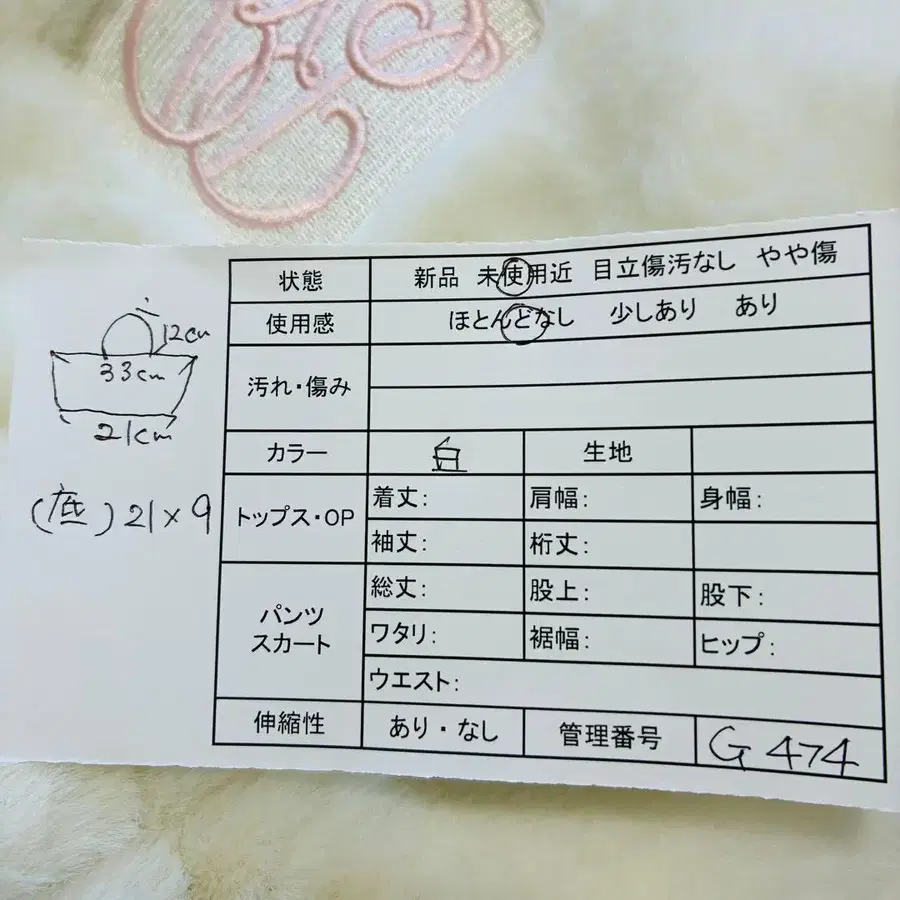 状態 新品 未使用近 目立傷汚なし やや傷
使用感 ほとんどなし 少しあり あり
汚れ・傷み
カラー 白 生地
トップス・OP 着丈: 肩幅: 身幅:
袖丈: 裄丈:
パンツ
スカート
総丈: 股上: 股下:
ワタリ: 裾幅: ヒップ:
ウエスト:
伸縮性 あり・なし 管理番号 G474
12cm
33cm
21cm
(底)21×9